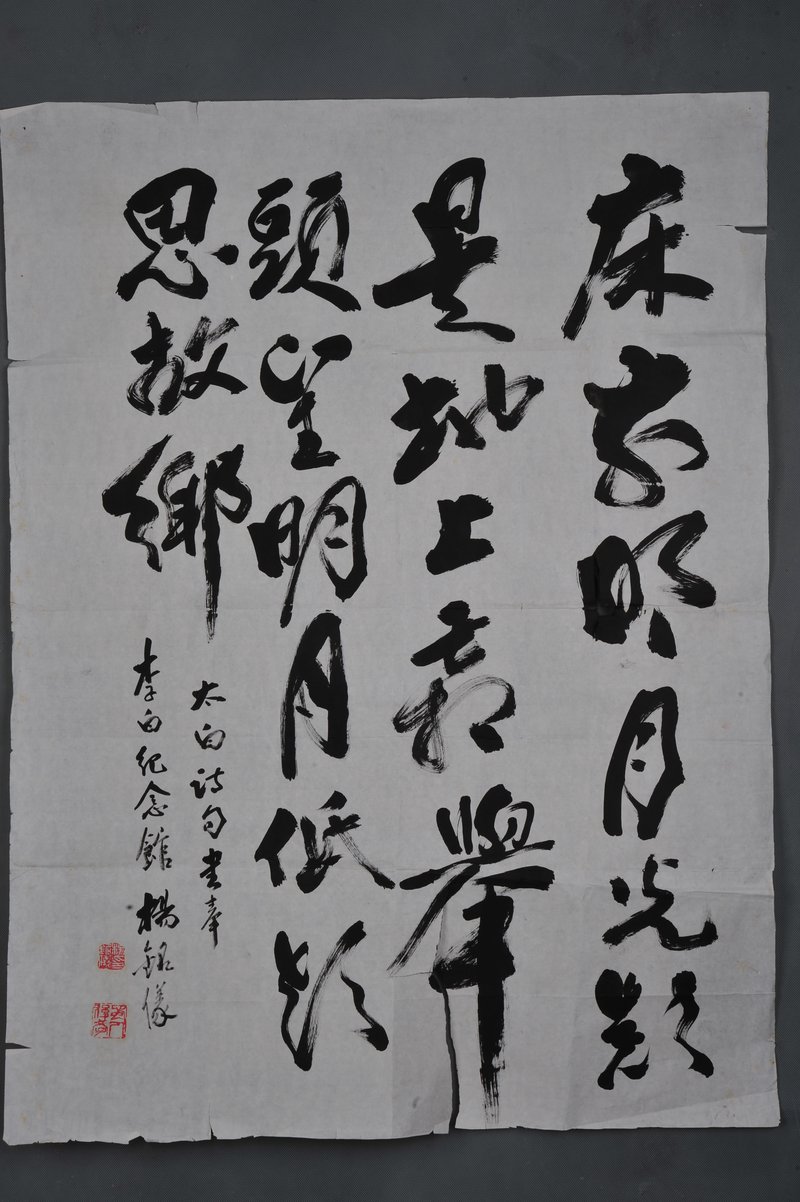 床前明月光疑
是地上霜舉
頭望明月低頭
思故鄉
太白诗句书奉
李白纪念館 楊銘儀